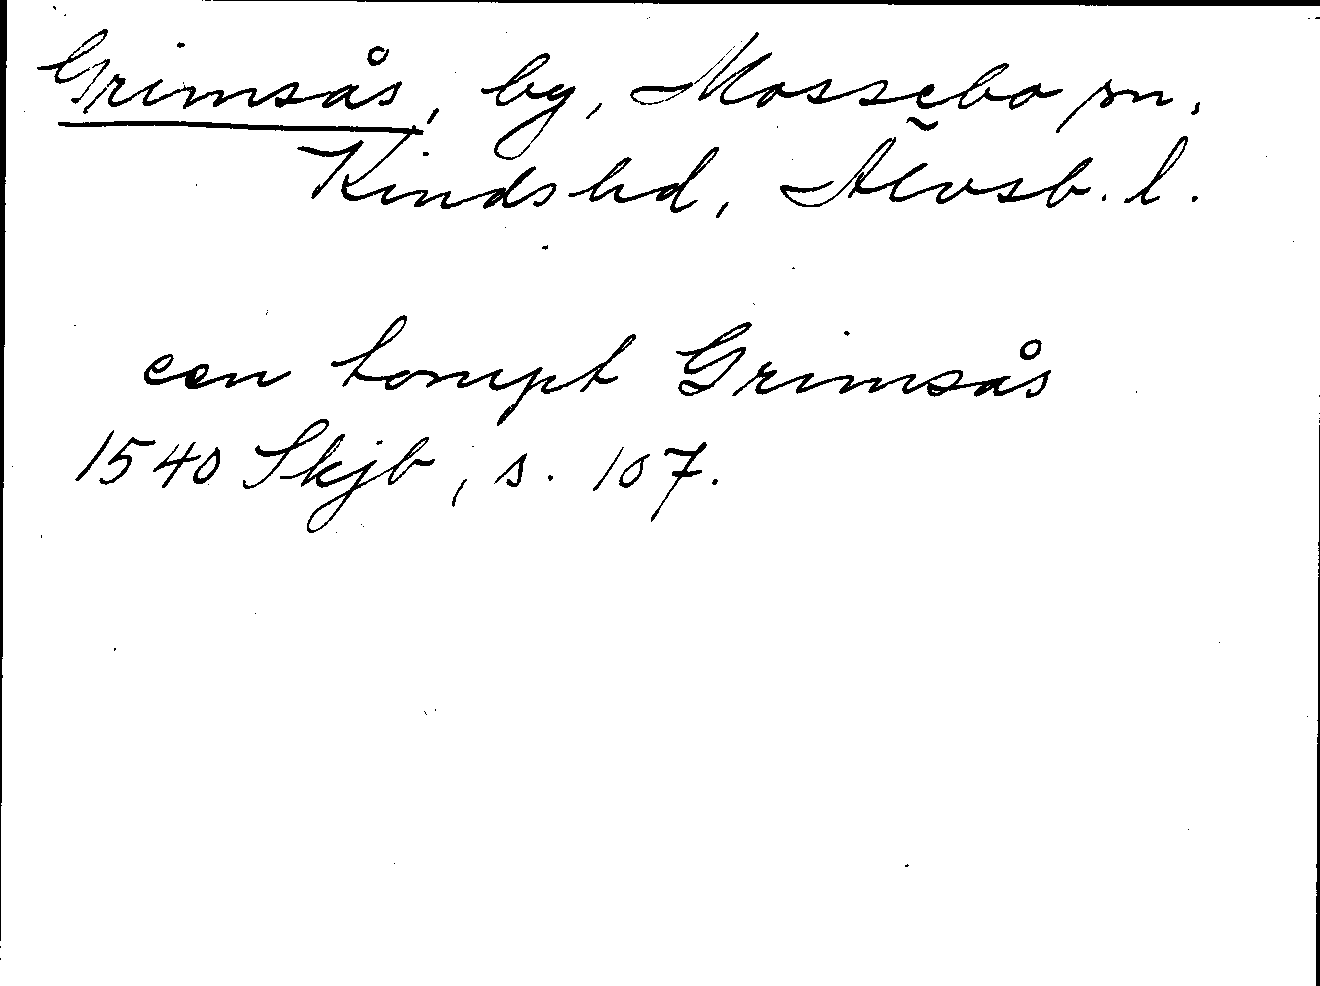 Grimsås, by, Mossebo sn,
Kinds hd, Älvsb. l.
een tompt Grimsås
1540 Skjb, s. 107.